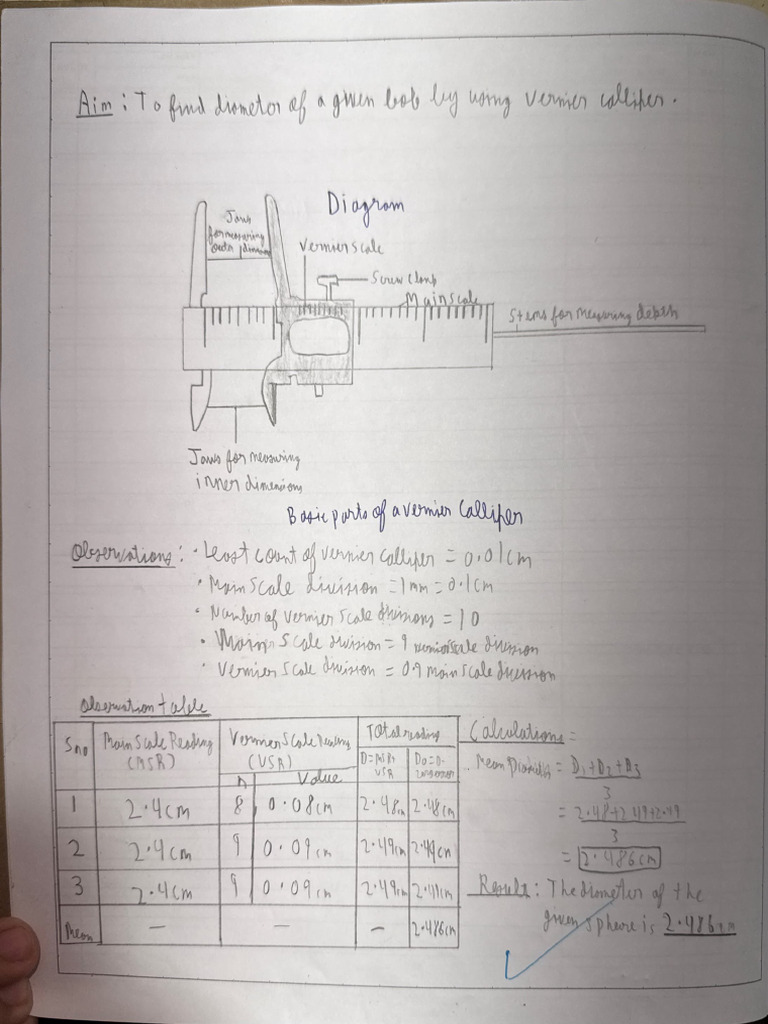 Aim: To find diameter of a given bob by using vernier calliper.
Diagram
Jaws
for measuring
outer dimension
Vernier scale
Screw clamp
Main scale
Stems for measuring depth
Jaws for measuring
inner dimensions
Basic parts of a vernier Calliper
Observations: • Least count of vernier calliper = 0.01cm
• Main Scale division = 1mm = 0.1cm
• Number of vernier scale divisions = 10
• Main Scale division = 9 vernier scale division
• Vernier scale division = 0.9 main scale division
Observation table
S no Main Scale Reading (MSR) Vernier Scale Reading (VSR) Total reading
n Value D=MSR+ VSR D0=D-
1 2.4cm 8 0.08cm 2.48cm 2.48cm
2 2.4cm 9 0.09cm 2.49cm 2.49cm
3 2.4cm 9 0.09cm 2.49cm 2.49cm
Mean — — — 2.486cm
Calculations =
Mean Diameter = D1+D2+D3
3
= 2.48+2.49+2.49
3
= 2.486cm
Result: The diameter of the
given sphere is 2.486cm